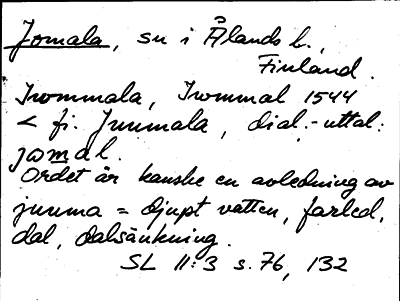 Jomala, sn i Ålands l.,
Finland.
Irommala, Irommal 1544
< fi. Juumala, dial.-uttal:
jomal.
Ordet är kanske en avledning av
juuma = djupt vatten, farled,
dal, dalsänkning.
SL II:3 s. 76, 132